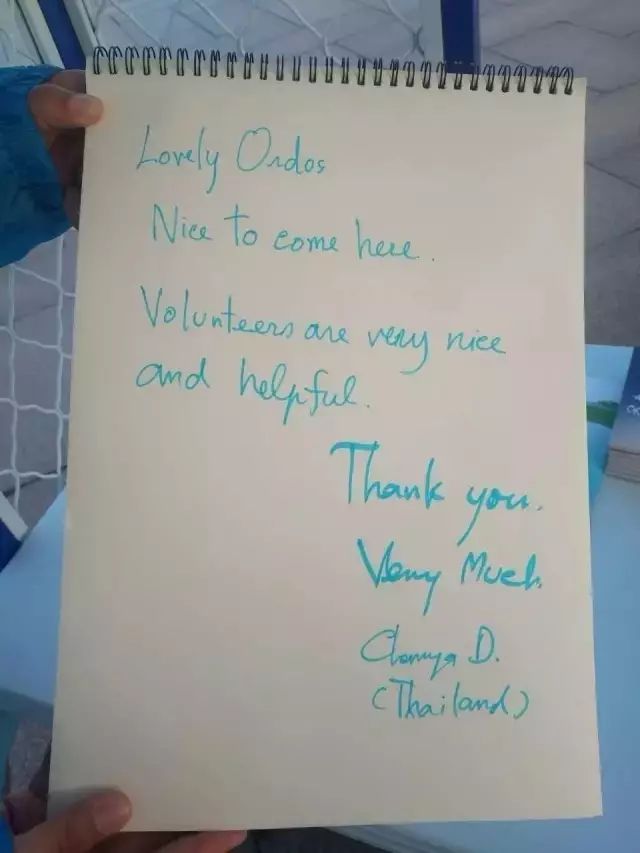 Lovely Ordos
Nice to come here.
Volunteers are very nice
and helpful.
Thank you.
Very Much.
D.
(Thailand)